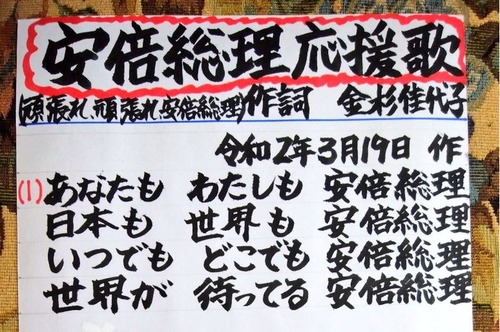 安倍総理応援歌
(頑張れ、頑張れ、安倍総理)作詞 金杉佳代子
令和2年3月19日 作
(1)あなたも わたしも 安倍総理
日本も 世界も 安倍総理
いつでも どこでも 安倍総理
世界が 待ってる 安倍総理